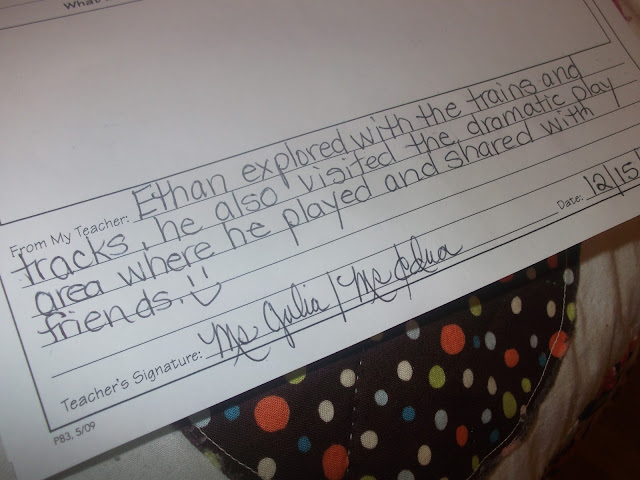 From My Teacher: Ethan explored with the trains and
tracks, he also visited the dramatic play
area where he played and shared with
friends.
Teacher's Signature: Ms Julia / Ms Date: 12/15
PB3, 5/09